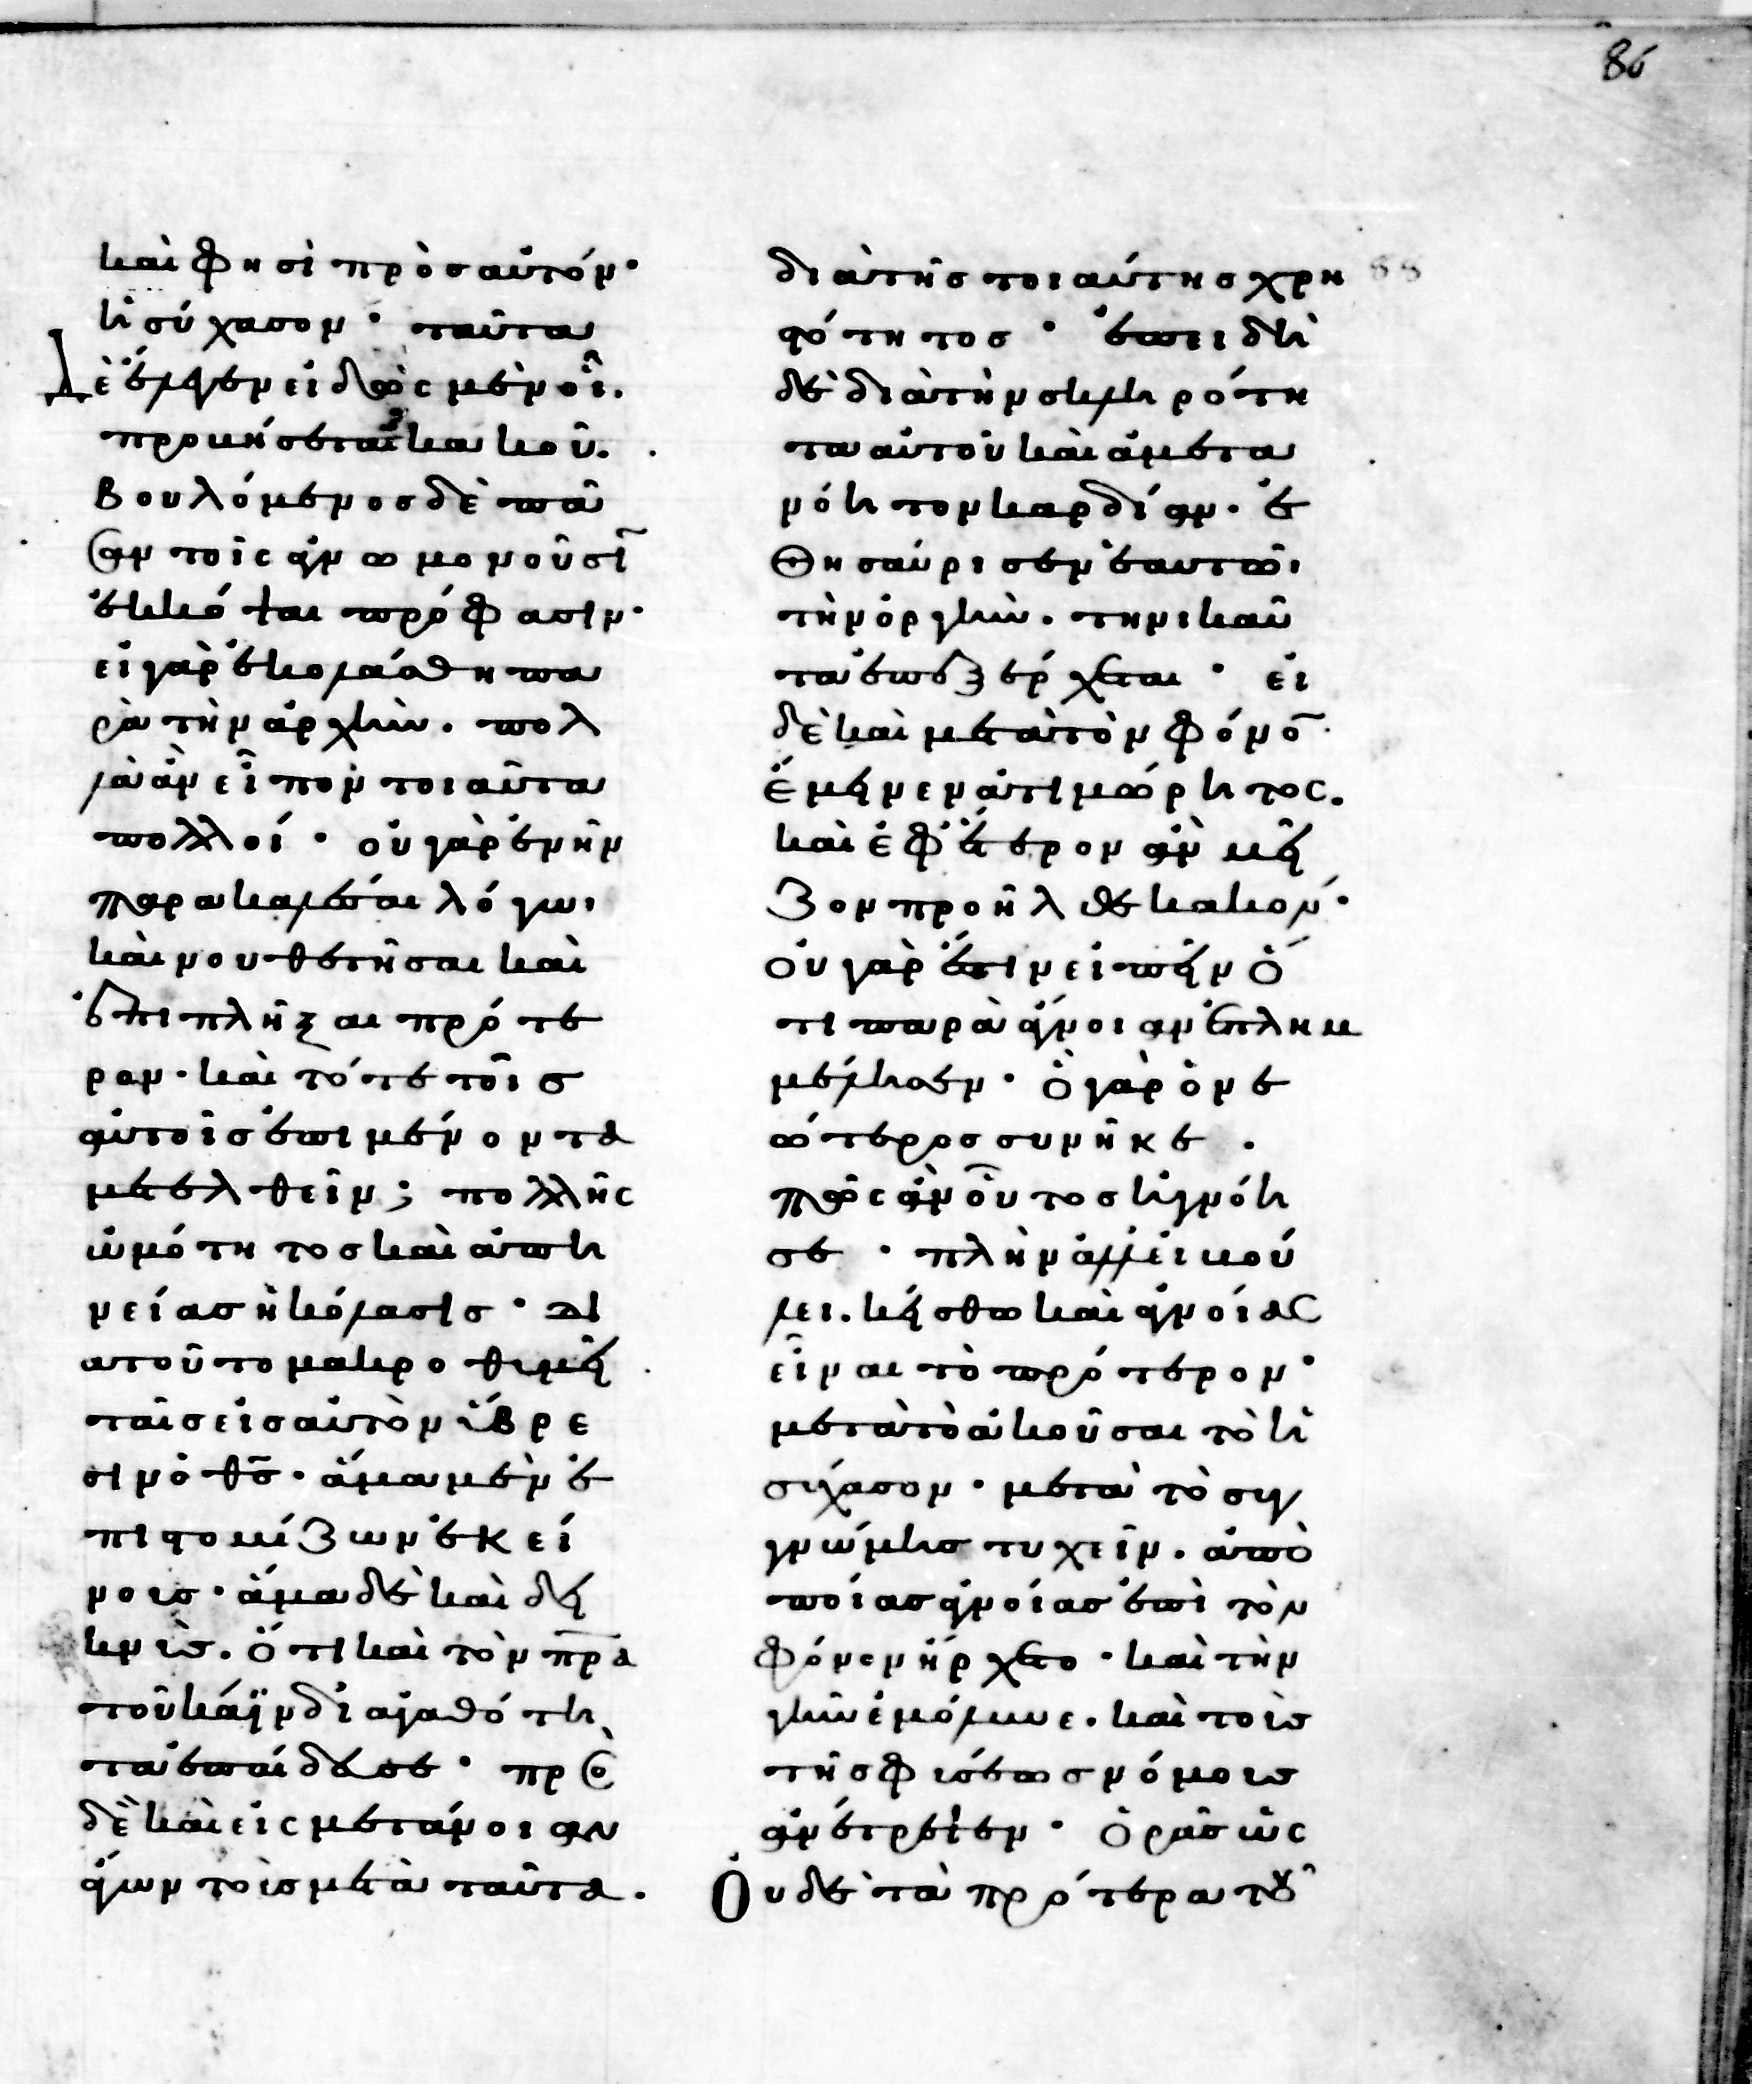 86
καὶ φησὶ πρὸς αὐτόν·
ἡσύχασον· ταῦτα
δὲ ἔλεγεν εἰδὼς μὲν οἷ
προκήσεται κακοῦ.
βουλόμενος δὲ πᾶ
σαν τοῖς ἀγνωμονοῦσῖ
ἐκκόψαι πρόφασιν·
εἰ γὰρ ἐκολάσθη πα
ρὰ τὴν ἀρχήν. πολ
λὰ ἂν εἶπον τοιαῦτα
πολλοί· οὐ γὰρ ἐνῆν
παρακαλέσαι λόγωι
καὶ νουθετῆσαι καὶ
ἐπιπλῆξαι πρότε
ραν· καὶ τότε τοῖς
αὐτοῖς ἐπιμένοντα
μετελθεῖν; πολλῆς
ὠμότητος καὶ ἀπη
νείας ἡ κόλασις· δι
α τοῦτο μακροθυμεῖ
ταῖς εἰς αὐτὸν ὕβρε
σιν ὁ θς· ἅμα μὲν ἐ
πιστομίζων ἐκεί
νους· ἅμα δὲ καὶ δει
κνὺς. ὅτι καὶ τὸν πρα
τοῦ κάϊν δι ἀγαθότη
τα ἐπαίδευσε· προ
δὲ καὶ εἰς μετάνοιαν
ἄγων τοὺς μετὰ ταῦτα.
διὰ τῆς τοιαύτης χρη
στότητος· ἐπειδὴ
δὲ διὰ τὴν σκληρότη
τα αὐτοῦ καὶ ἀμετα
νόητον καρδίαν· ἐ
θησαύρισεν ἑαυτῶι
τὴν ὀργήν. τηνικαῦ
τα ἐπεξέρχεται· εἰ
δὲ καὶ μετὰ τὸν φόνο
ἔμεινεν ἀτιμώρητος.
καὶ ἐφ ἕτερον ἂν μεῖ
ζον προῆλθε κακόν·
οὐ γὰρ ἔστιν εἰπεῖν ὅ
τι παρὰ ἄνοιαν ἐπλημ
μέλησεν· ὃ γὰρ ὁ νε
ώτερος συνῆκε.
πῶς ἂν οὗτος ἠγνόη
σε· πλὴν ἀλλ εἰ βού
λει. κείσθω καὶ ἀνοίας
εἶναι τὸ πρότερον·
μετὰ τὸ ἀκοῦσαι τὸ ἡ
σύχασον· μετὰ τὸ συγ
γνώμης τυχεῖν. ἀπὸ
ποίας ἀνοίας ἐπὶ τὸν
φόνον ἤρχετο· καὶ τὴν
γῆν ἐμόλυνε. καὶ τοὺς
τῆς φύσεως νόμους
ἀνέτρεψεν· ὁρᾶς ὡς
οὐδὲ τὰ πρότερα τοῦ